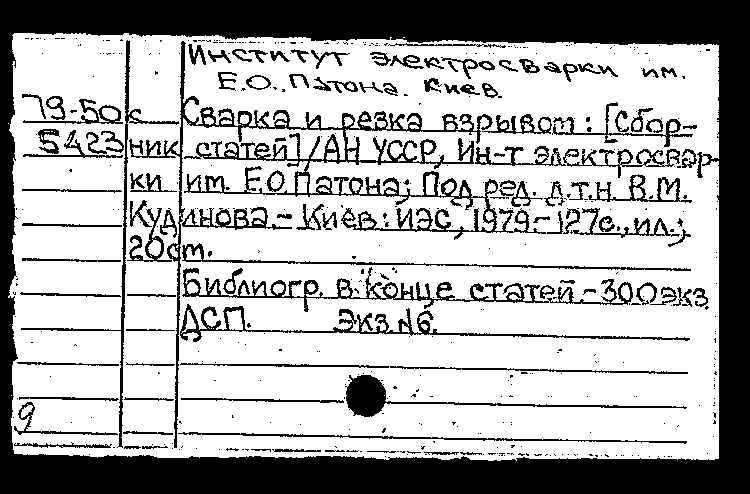 Институт электросварки им.
Е.О. Патона. Киев.
79-50с Сварка и резка взрывом: [Сбор-
5423 ник статей]/АН УССР, Ин-т электросвар-
ки им. Е.О Патона; Под ред. д.т.н. В.М.
Кудинова.- Киев: ИЭС, 1979.- 127с., ил.;
20см.
Библиогр. в конце статей.- 300экз
ДСП. Экз №6.
9